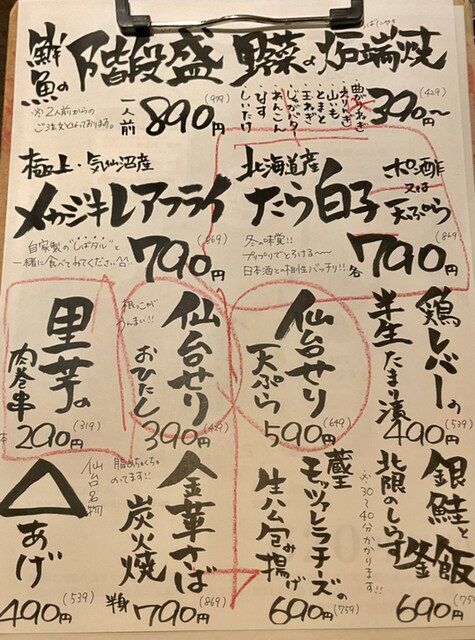 鮮魚の階段盛
※2人前からの
ご注文となっております。
一人前 890円 (979)
野菜の炉端焼
曲がりねぎ
えりんぎ
山いも
とまと
玉ねぎ
じゃがバター
れんこん
なす
しいたけ
390円〜 (429)
極上・気仙沼産
メカジキレアフライ
自家製の"しばタル"と
一緒に食べてみてください☆
790円 (869)
北海道産
たら白子
ポン酢
又は
天ぷら
冬の味覚!!
プリプリでとろける〜
日本酒との相性バッチリ!!
各790円 (869)
里芋の
肉巻串
本290円 (319)
根っこが
うんまい!!
仙台せり
おひたし
390円 (429)
仙台せり
天ぷら
590円 (649)
鶏レバーの
半生たまり漬
490円 (539)
仙台名物
△あげ
490円 (539)
脂めちゃくちゃ
のってます!!
金華さば
炭火焼
半身790円 (869)
蔵王
モッツァレラチーズの
生ハム包み揚げ
690円 (759)
銀鮭と
北限のしらす
釜飯
※30〜40分かかります!!
690円 (759)